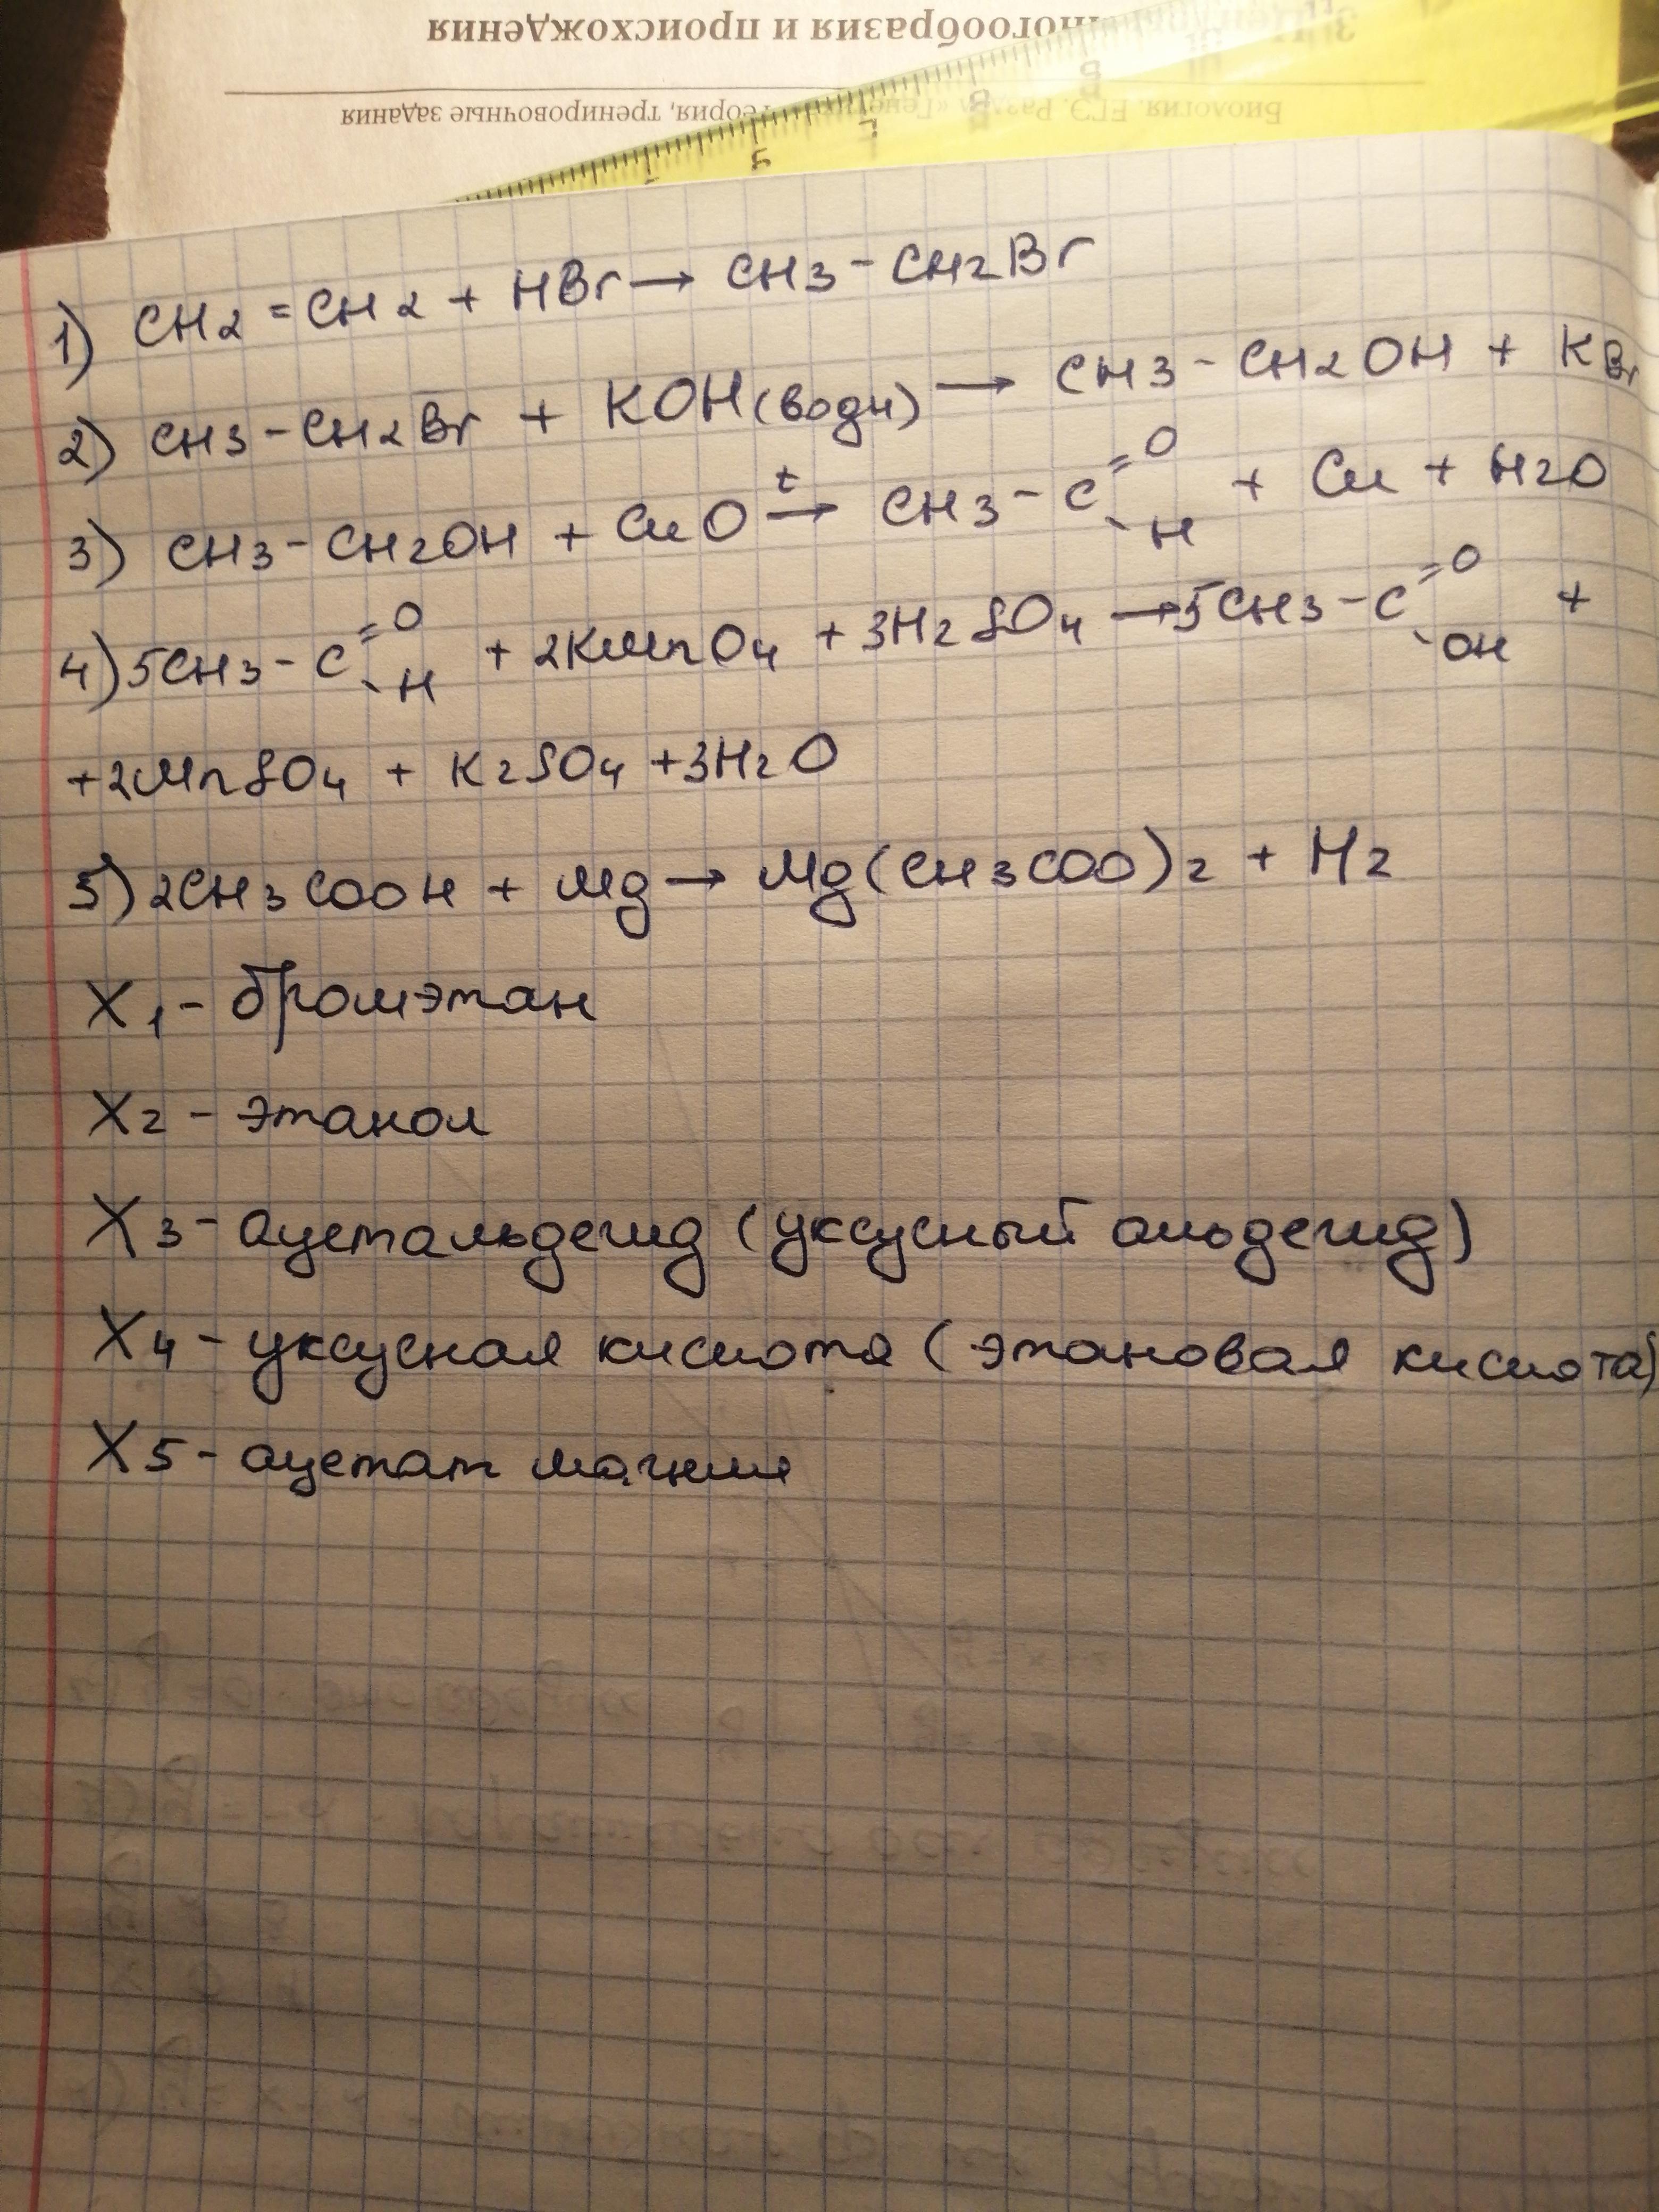 многообразия и происхождения
Биология. ЕГЭ. Раздел «Генетика». Теория, тренировочные задания
1) CH2 = CH2 + HBr → CH3 - CH2Br
2) CH3 - CH2Br + KOH (водн) → CH3 - CH2OH + KBr
3) CH3 - CH2OH + CuO t→ CH3 - C =O -H + Cu + H2O
4) 5CH3 - C =O -H + 2KMnO4 + 3H2SO4 → 5CH3 - C =O -OH +
+ 2MnSO4 + K2SO4 + 3H2O
5) 2CH3COOH + Mg → Mg(CH3COO)2 + H2
X1 - бромэтан
X2 - этанол
X3 - ацетальдегид (уксусный альдегид)
X4 - уксусная кислота (этановая кислота)
X5 - ацетат магния